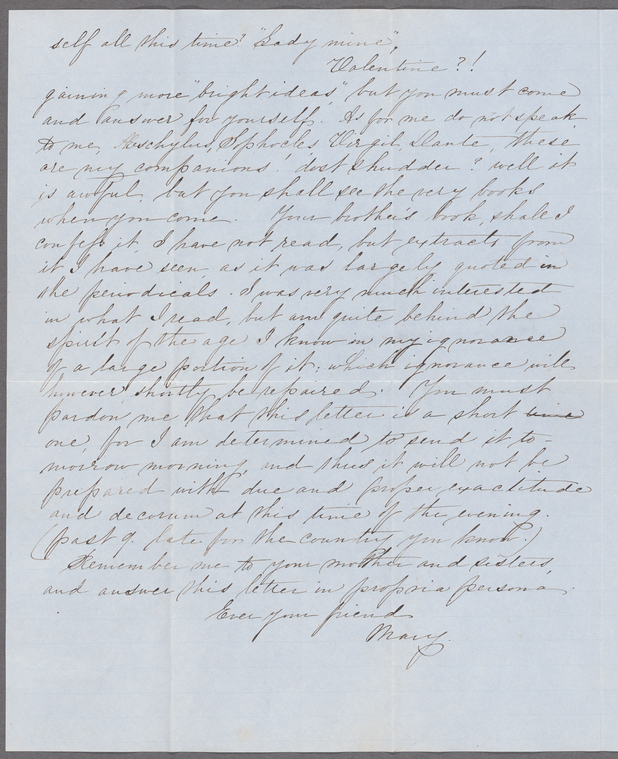 self all this time? "Lady mine",
Valentine?!
gaining more "bright ideas", but you must come
and answer for yourself. As for me do not speak
to me, Aeschylus, Sophocles Virgil, Dante, these
are my companions! dost shudder? well it
is awful, but you shall see the very books
when you come. Your brother's book, shall I
confess it, I have not read, but extracts from
it I have seen, as it was largely quoted in
the periodicals. I was very much interested
in what I read, but am quite behind the
spirit of the age I know in my ignorance
of a large portion of it; which ignorance will
however shortly be repaired. You must
pardon me that this letter is a short time
one, for I am determined to send it to-
morrow morning, and thus it will not be
prepared with due and proper exactitude
and decorum at this time of the evening.
(past 9. late for the country you know.)
Remember me to your mother and sisters,
and answer this letter in propria persona.
Ever your friend
Mary.